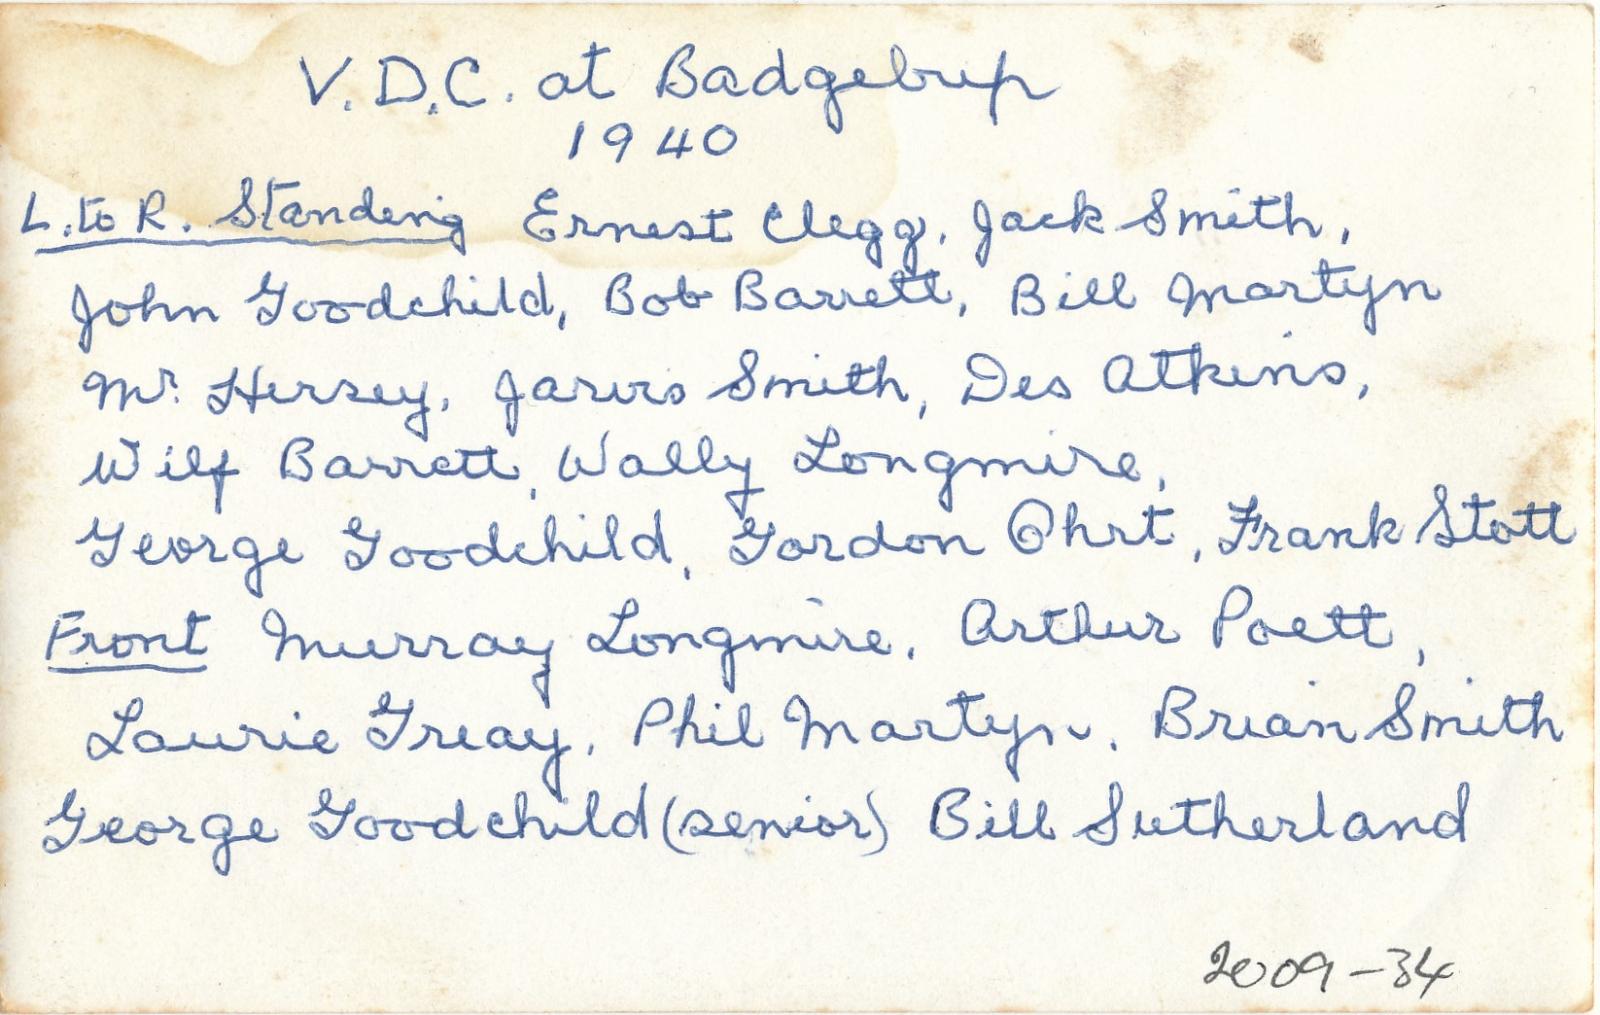 V.D.C. at Badgebup
1940
L. to R. Standing Ernest Clegg, Jack Smith,
John Goodchild, Bob Barrett, Bill Martyn
Mr. Hersey, Jarvis Smith, Des Atkins,
Wilf Barrett, Wally Longmire,
George Goodchild, Gordon Ohrt, Frank Stott
Front Murray Longmire, Arthur Poett,
Laurie Greay, Phil Martyn, Brian Smith
George Goodchild (senior) Bill Sutherland
2009-34